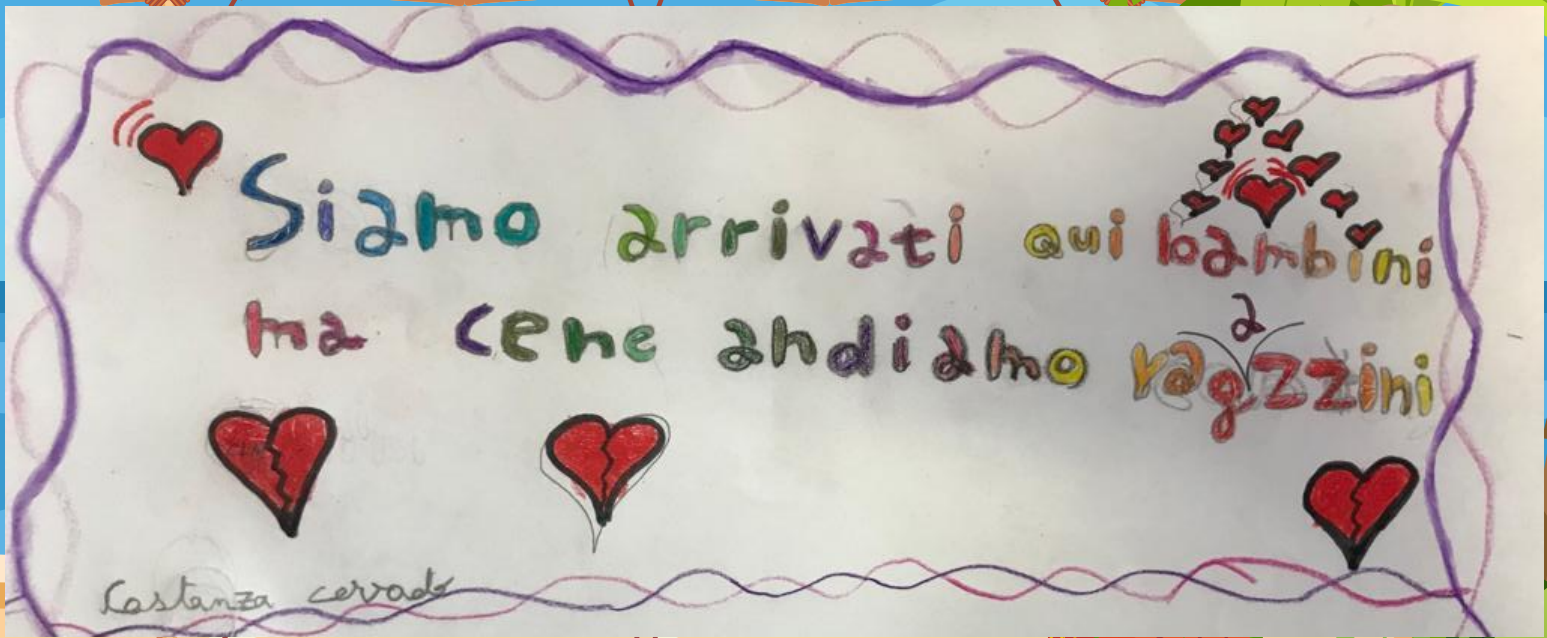 Siamo arrivati qui bambini
ma cene andiamo ragazzini
Costanza